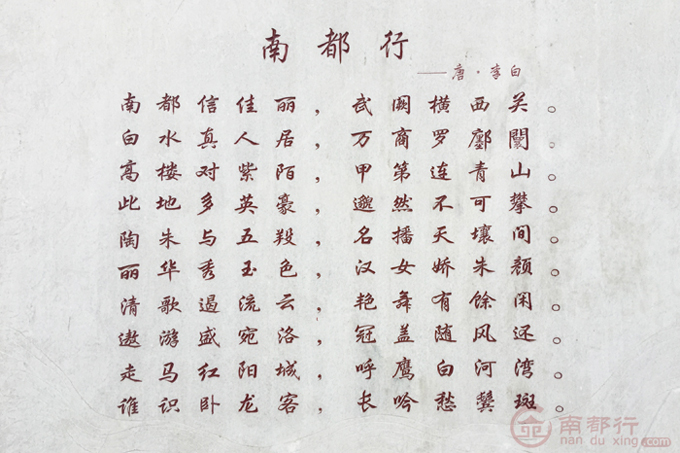 南都行
——唐·李白
南都信佳丽，武阙横西关。
白水真人居，万商罗鄽闤。
高楼对紫陌，甲第连青山。
此地多英豪，邈然不可攀。
陶朱与五羖，名播天壤间。
丽华秀玉色，汉女娇朱颜。
清歌遏流云，艳舞有馀闲。
遨游盛宛洛，冠盖随风还。
走马红阳城，呼鹰白河湾。
谁识卧龙客，长吟愁鬓斑。
南都行
nan du xing.com